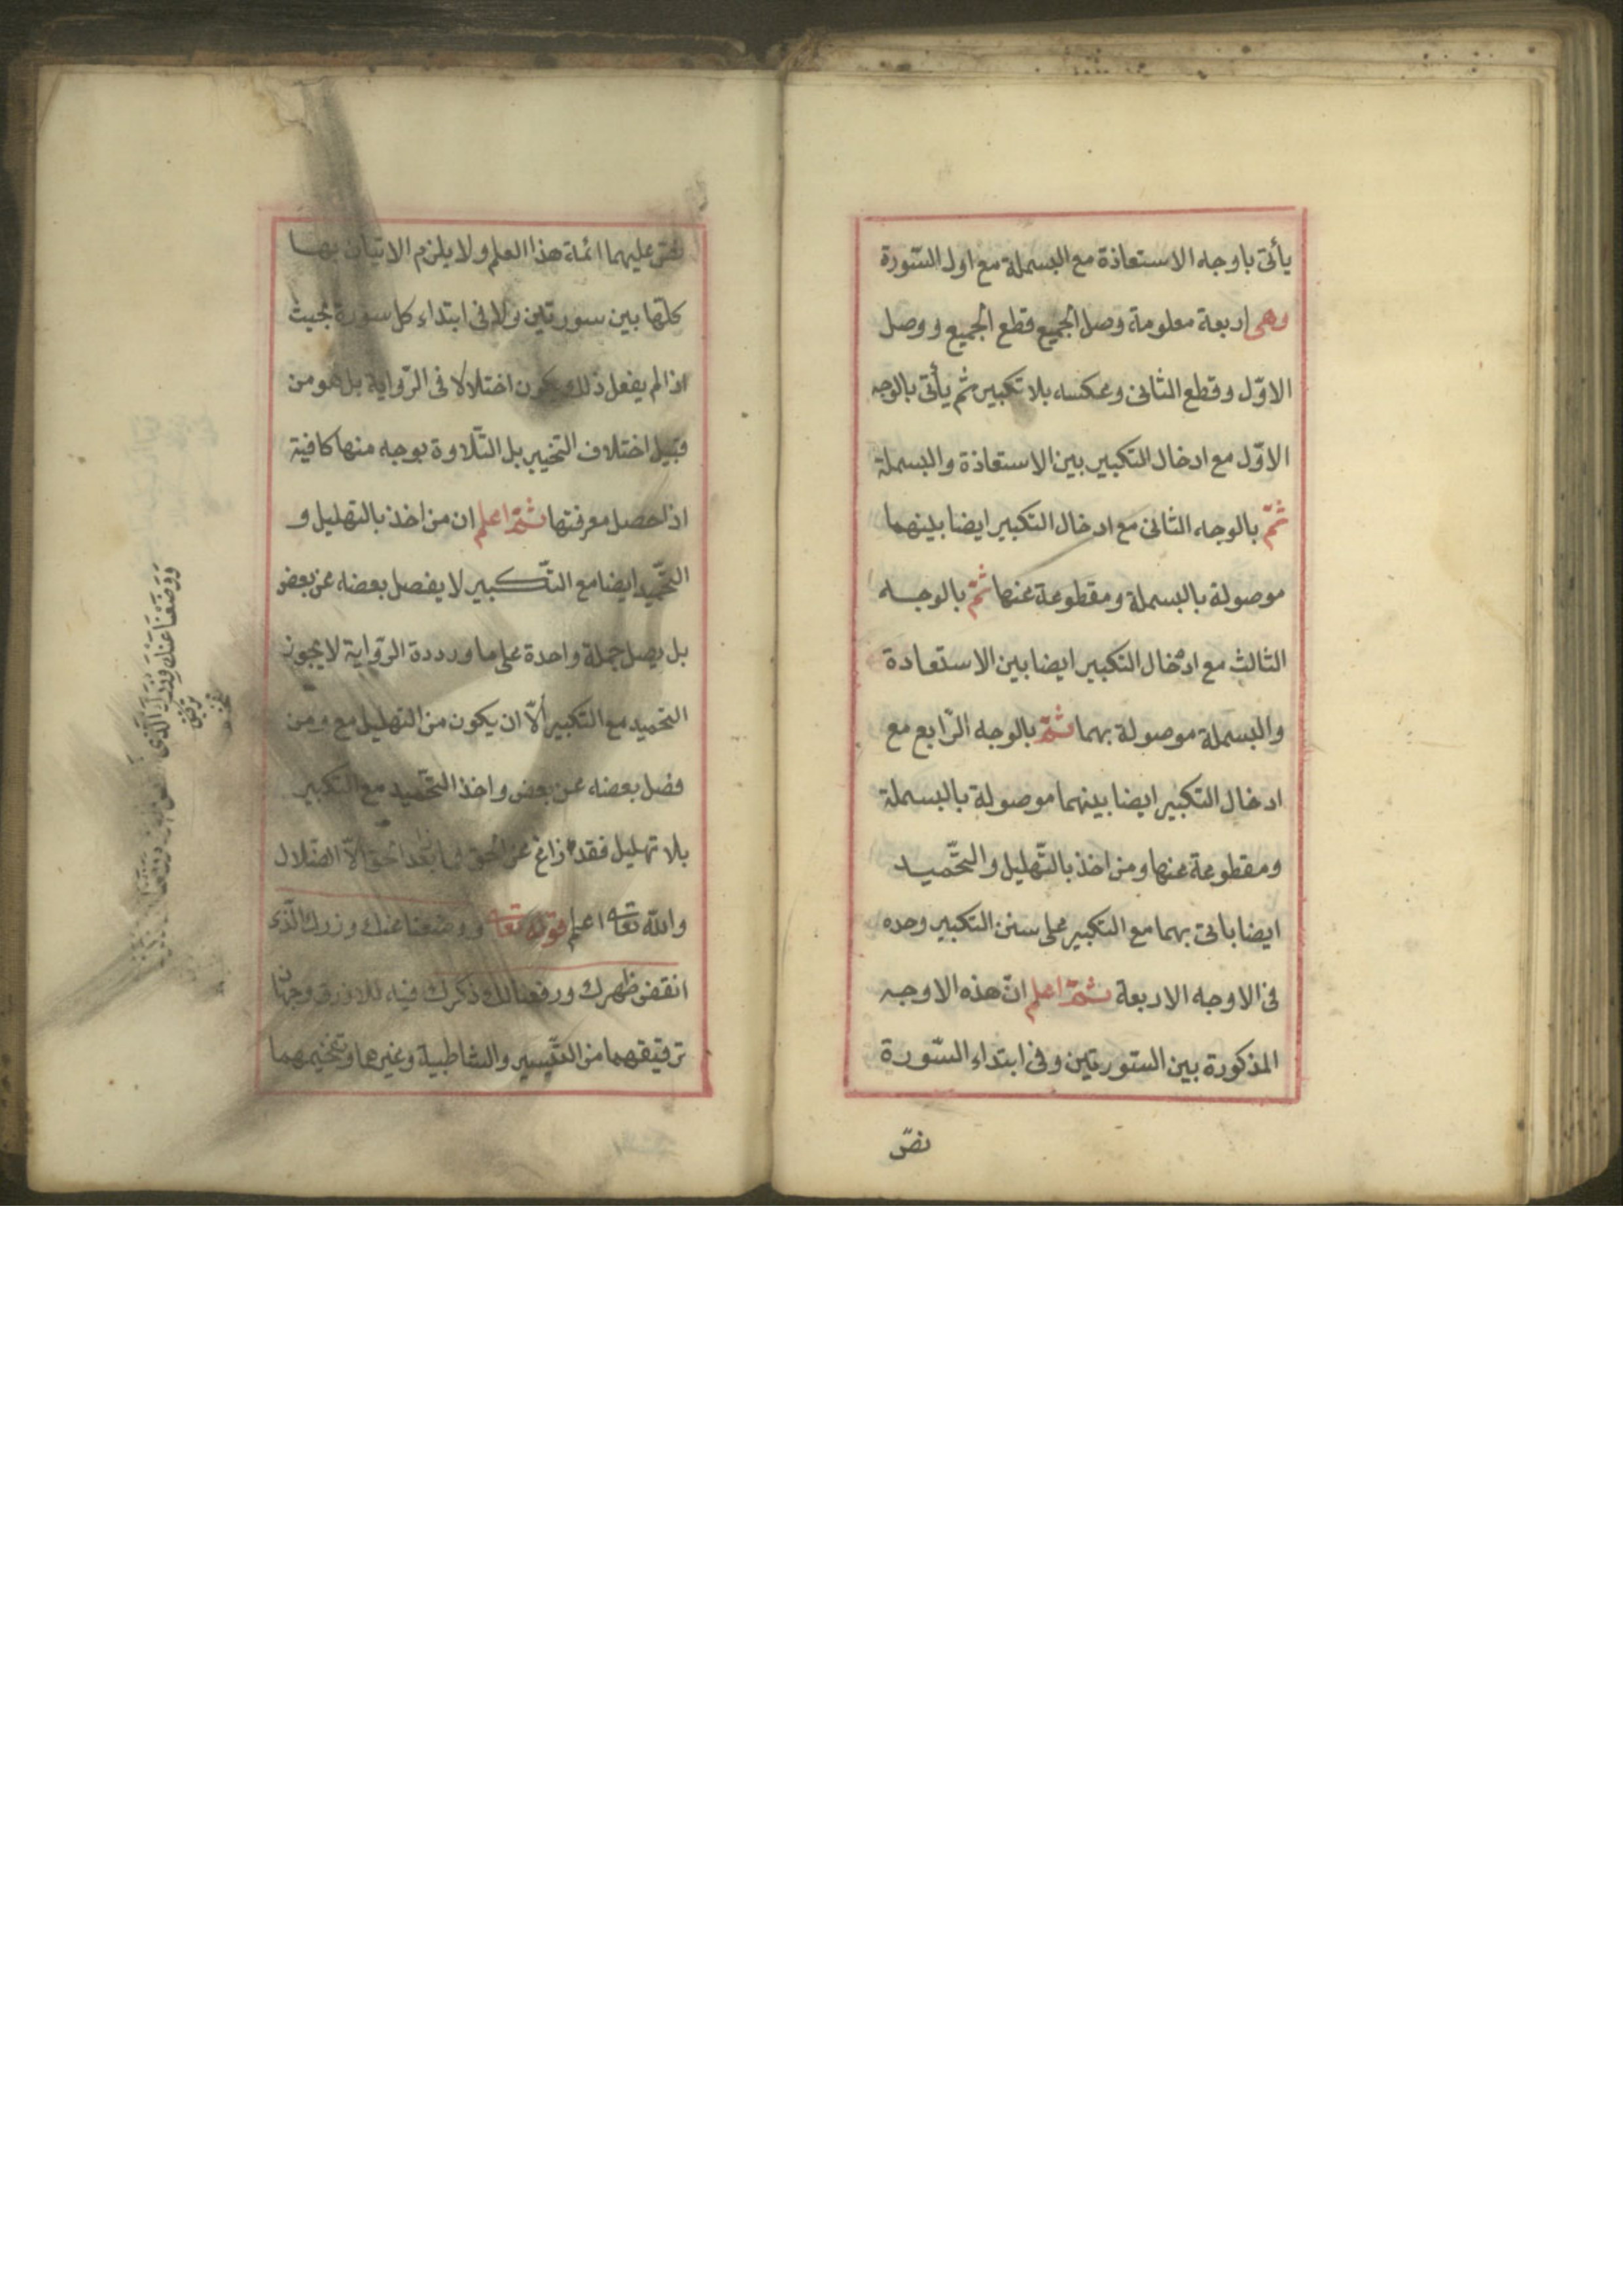 يأتى باوجه الاستعاذة مع البسملة مع اول السّورة
وهى اربعة معلومة وصل الجميع قطع الجميع و وصل
الاوّل وقطع الثانى وعكسه بلا تكبير ثم يأتى بالوجه
الاوّل مع ادخال التكبير بين الاستعاذة والبسملة
ثمّ بالوجه الثانى مع ادخال التكبير ايضا بينهما
موصولة بالبسملة ومقطوعة عنها ثمّ بالوجه
الثالث مع ادخال التكبير ايضا بين الاستعادة
والبسملة موصولة بهما ثمّ بالوجه الرّابع مع
ادخال التكبير ايضا بينهما موصولة بالبسملة
ومقطوعة عنها ومن اخذ بالتّهليل والتحّميد
ايضا باتى بهما مع التكبير على سنن التكبير وحده
فى الاوجه الاربعة ثمّ اعلم انّ هذه الاوجه
المذكورة بين السّورتين وفى ابتداء السّورة
نصّ
نصّ عليهما ائمة هذا العلم ولا يلزم الاتيان بها
كلّها بين سورتين ولا فى ابتداء كل سورة بحيث
اذا لم يفعل ذلك يكون اختلالا فى الرّواية بل هو من
قبيل اختلاف التخيير بل التّلاوة بوجه منها كافية
اذا حصل معرفتها ثمّ اعلم ان من اخذ بالتهليل و
التحّميد ايضا مع التّكبير لا يفصل بعضه عن بعض
بل يصل جملة واحدة على ما ورددة الرّواية لا يجوز
التحميد مع التكبير ألّا ان يكون من التهليل مع ومن
فصل بعضه عن بعض واخذ التحّميد مع التكبير
بلا تهليل فقد زاغ عن الحق فما بعد الحق الّا الضلال
والله تعا اعلم قوله تعا ووضعنا عنك وزرك الّذى
انقض ظهرك ورفعنا لك ذكرك فيه للازرق وجهان
ترقيقهما من التّيسير والشاطبية وغيرهما وتفخيمهما
وَوَضَعْنَا عَنْكَ وِزْرَكَ الَّذى
ترقيق